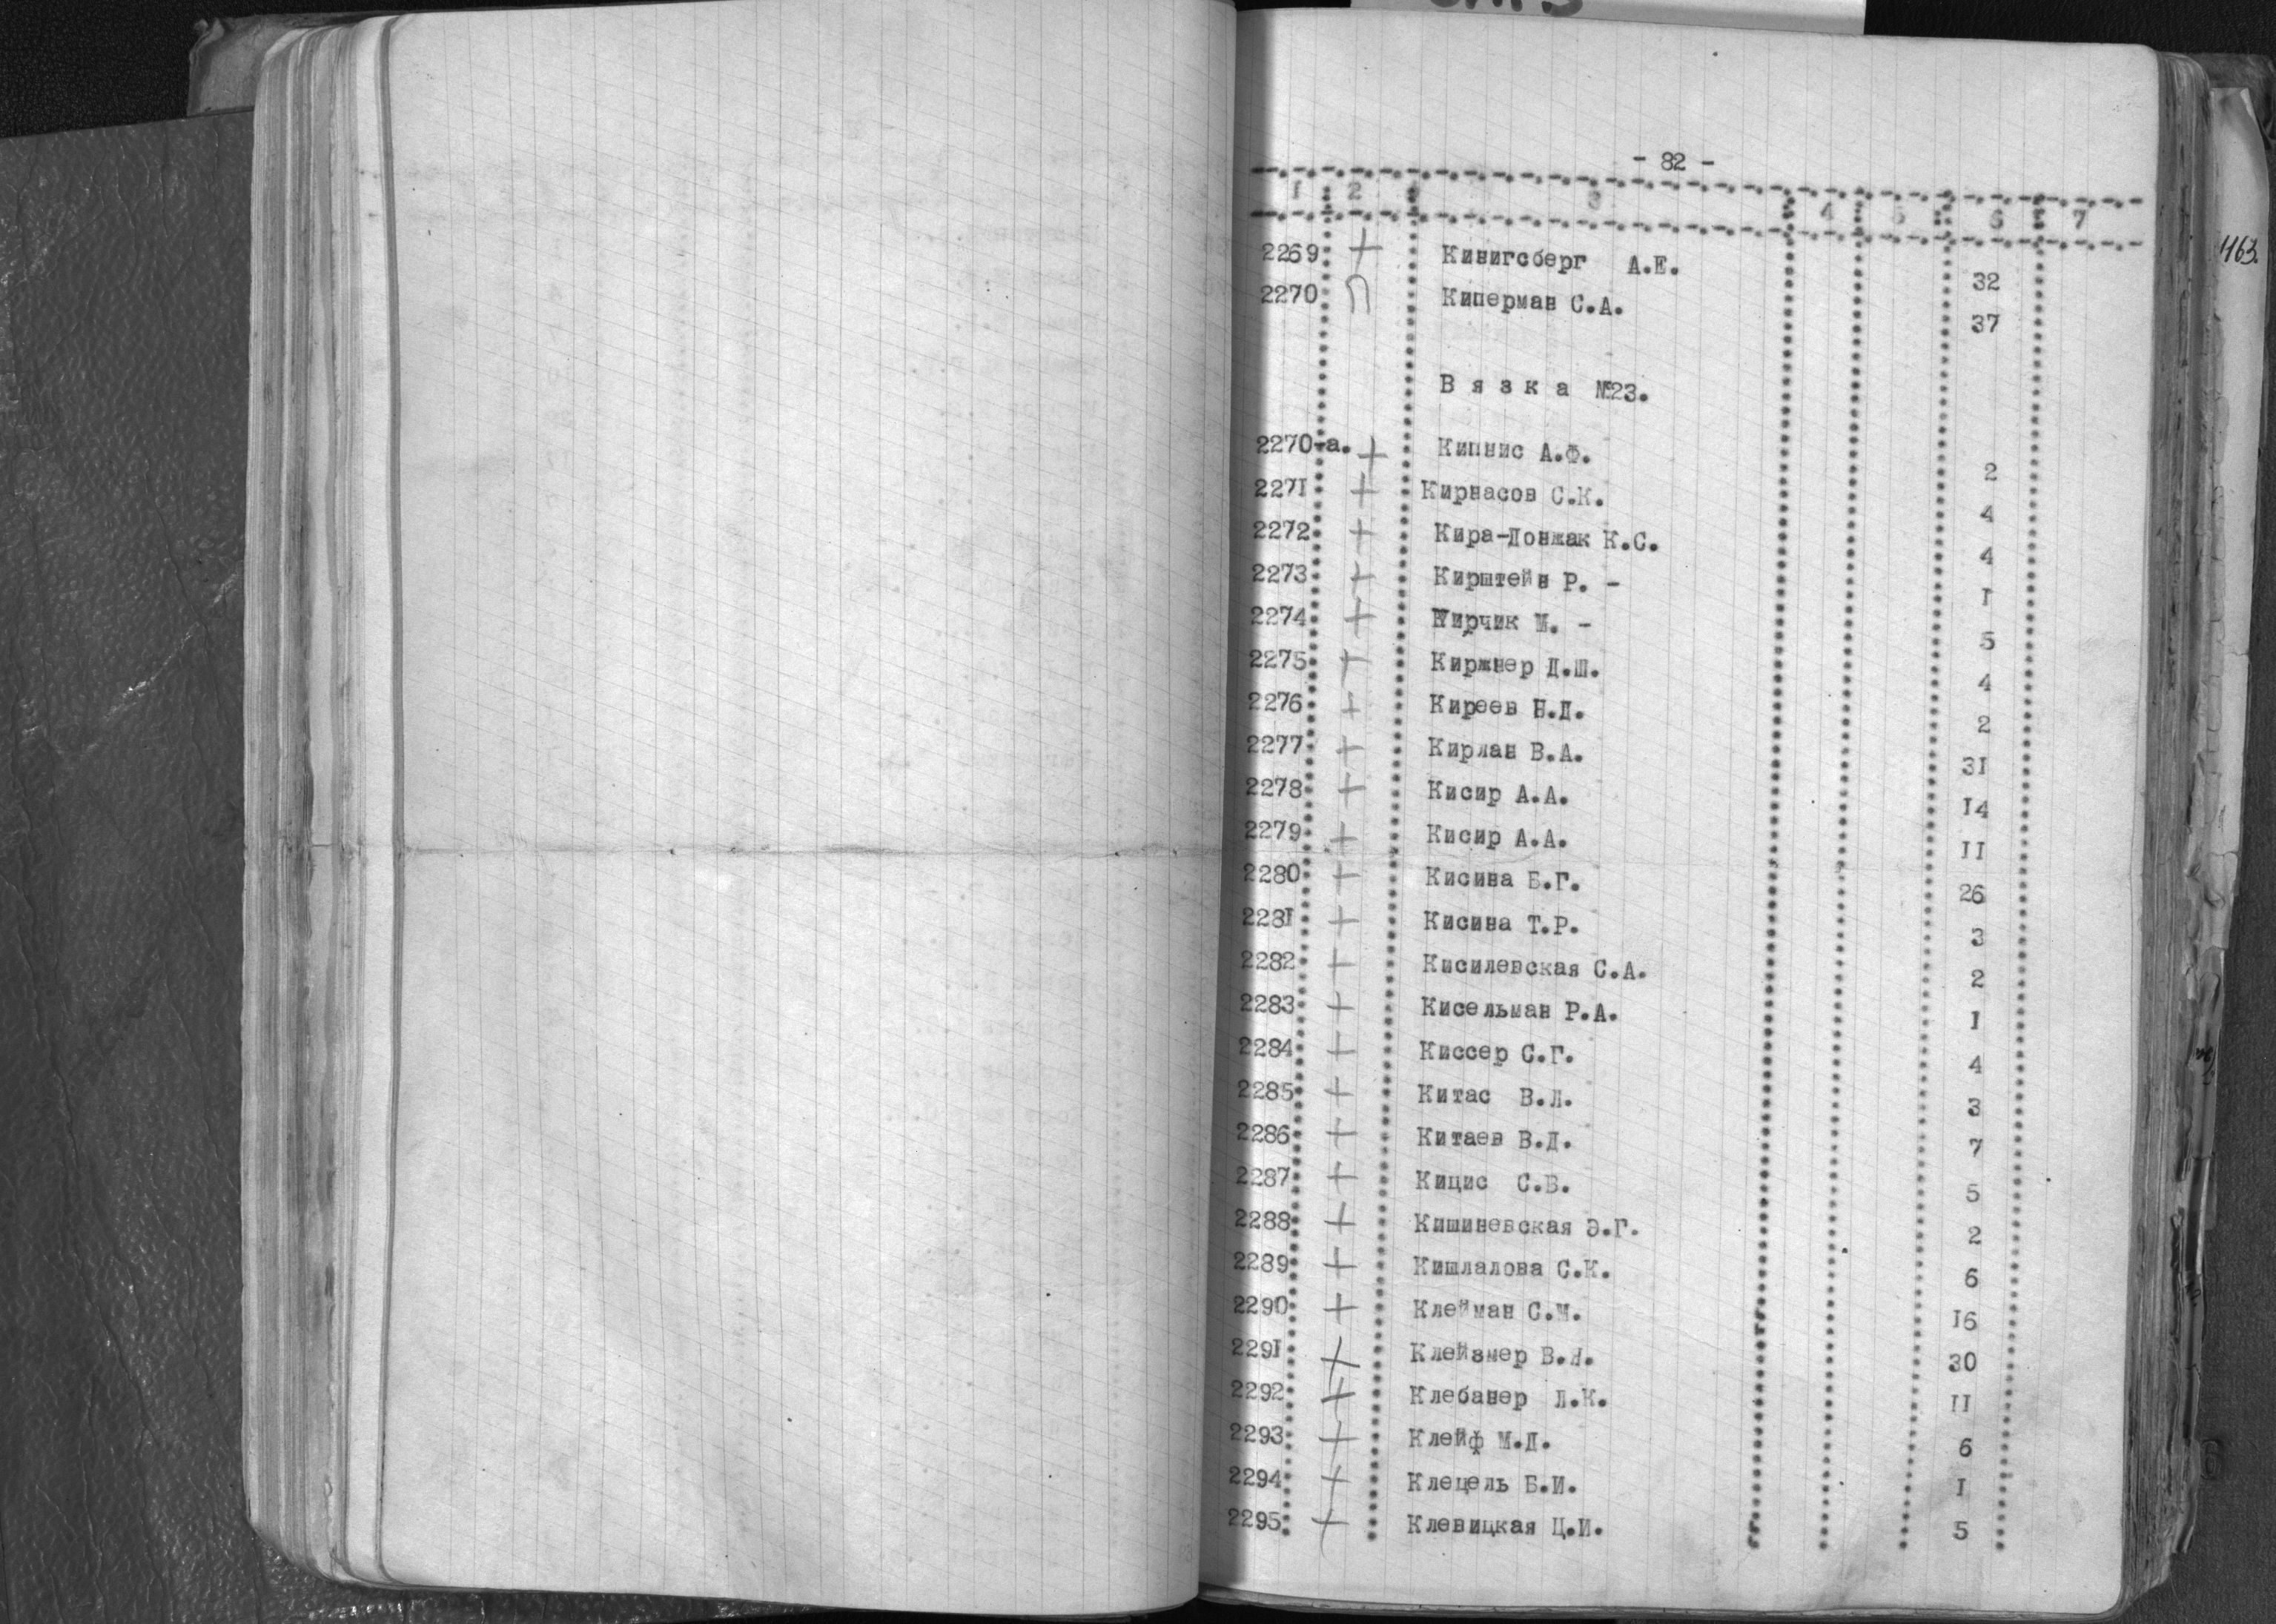 - 82 -
1 2 3 4 5 6 7
2269 + Кинигсберг А.Е. 32
2270 Киперман С.А. 37
Вязка №23.
2270-а. + Кипнис А.Ф. 2
2271 + Кирнасов С.К. 4
2272 + Кира-Донжак К.С. 4
2273 + Кирштейн Р. - I
2274 + Кирчик М. - 5
2275 + Киржнер Д.Ш. 4
2276 + Киреев Н.Д. 2
2277 + Кирлан В.А. 3I
2278 + Кисир А.А. I4
2279 + Кисир А.А. II
2280 + Кисина Б.Г. 26
228I + Кисина Т.Р. 3
2282 + Кисилевская С.А. 2
2283 + Кисельман Р.А. I
2284 + Киссер С.Г. 4
2285 + Китас В.Л. 3
2286 + Китаев В.Д. 7
2287 + Кицис С.В. 5
2288 + Кишиневская Э.Г. 2
2289 + Кишлалова С.К. 6
2290 + Клейман С.М. I6
229I + Клейзмер В.Н. 30
2292 + Клебанер Л.К. II
2293 + Клейф М.Д. 6
2294 + Клецель Б.И. I
2295 + Клевицкая Ц.И. 5
1163.